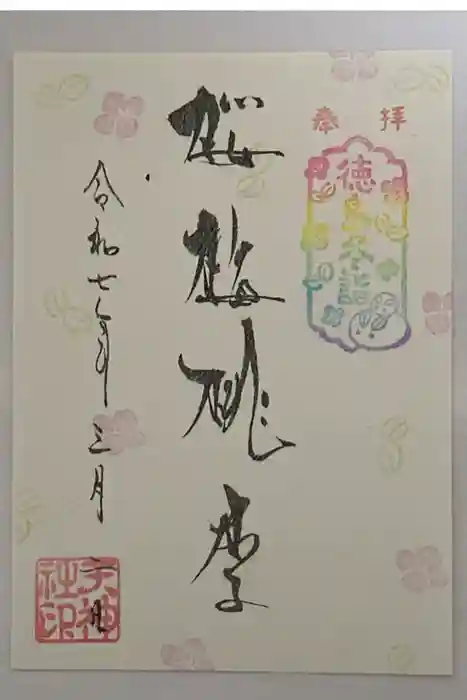 奉拝
徳島参詣
桜梅桃李
令和七年三月二日
天神社印